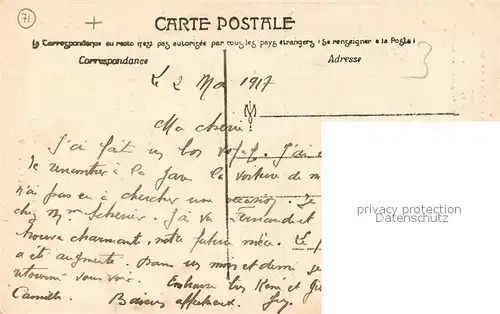 71
CARTE POSTALE
La Correspondance au recto n'est pas autorisée par tous les pays étrangers (Se renseigner à la Poste)
Correspondance
Adresse
3
Le 2 Mai 1917
M
Ma chérie
J'ai fait un bon J'ai
rencontrer à la gare la voiture de
n'ai pas eu à chercher une occasion. Je
chez Mme J'ai vu Fernand et
trouve charmante, notre future nièce. Le
a été augmenté. Dans un mois et demi je
vous voir. Embrasse René et
Camille. Baisers affectueux.
privacy protection
Datenschutz